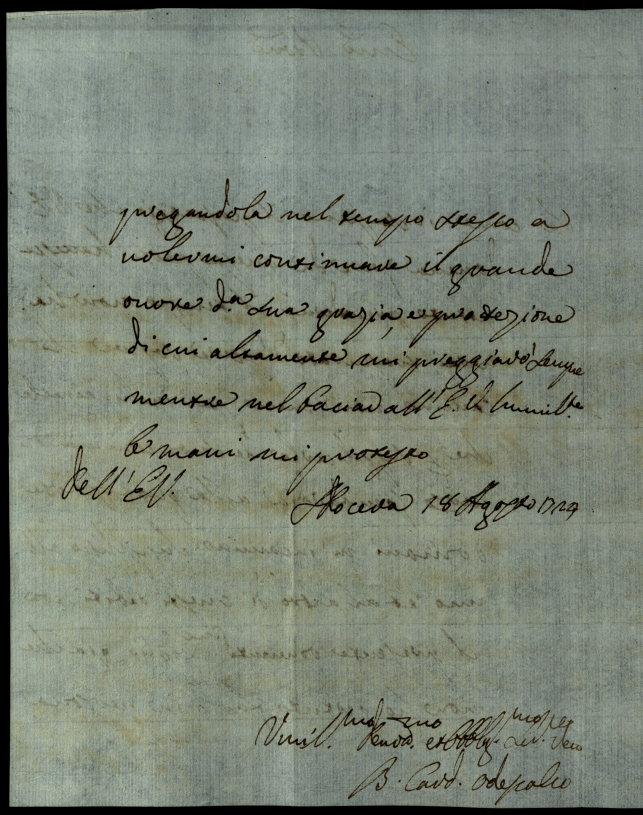 pregandola nel tempo stesso a
volermi continuare il grande
onore d.a sua grazia, e protezione
di cui altamente mi preggiarò sempre
mentre nel baciar all' E. V. humil.te
le mani mi protesto
dell' E.V.
Nocera 18 Agosto 1729
Umil.mo et obblig.mo Ser. Vero
B. Card. Odescalco